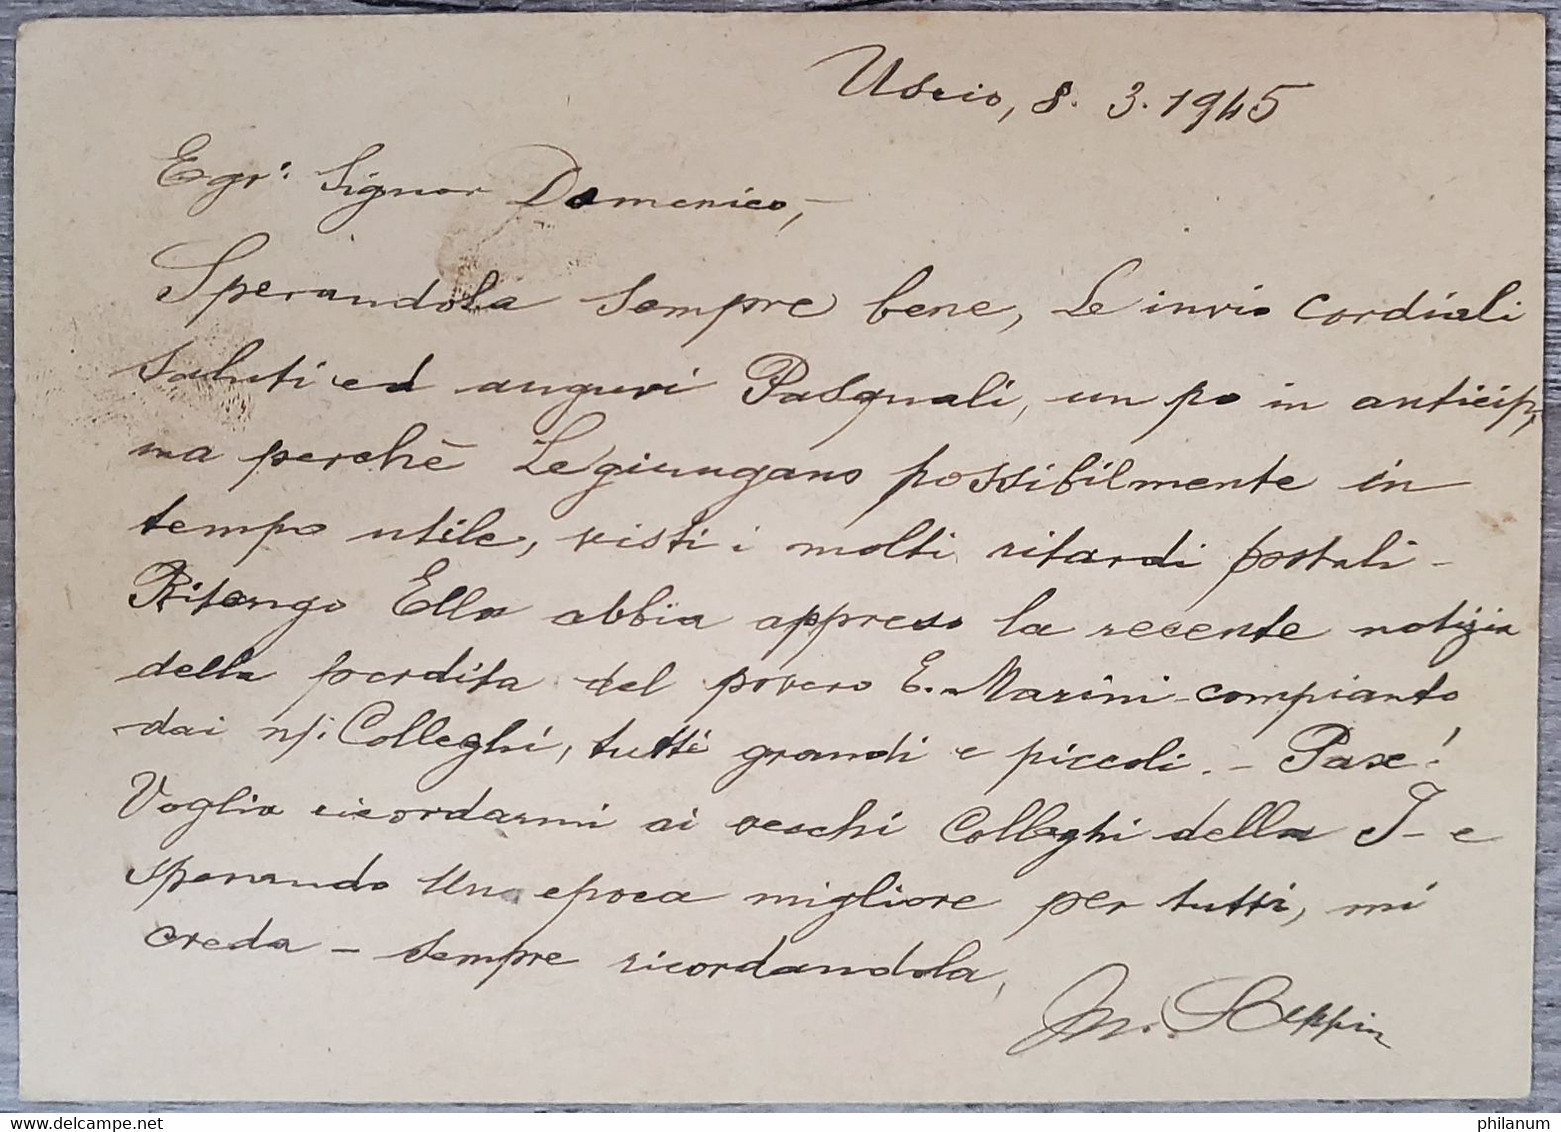 Uscio, 8. 3. 1945
Egr. Signor Domenico,-
Sperandola sempre bene, Le invio cordiali
saluti ed auguri Pasquali, un po in anticip,
ma perchè Le giungano possibilmente in
tempo utile, visti i molti ritardi postali -
Ritengo Ella abbia appreso la recente notizia
della perdita del povero E. Marini - compianto
dai n/: Colleghi, tutti grandi e piccoli. - Pace!
Voglia ricordarmi ai vecchi Colleghi della I- e
sperando un epoca migliore per tutti, mi
creda - sempre ricordandola,
M.
delcampe.net
philanum